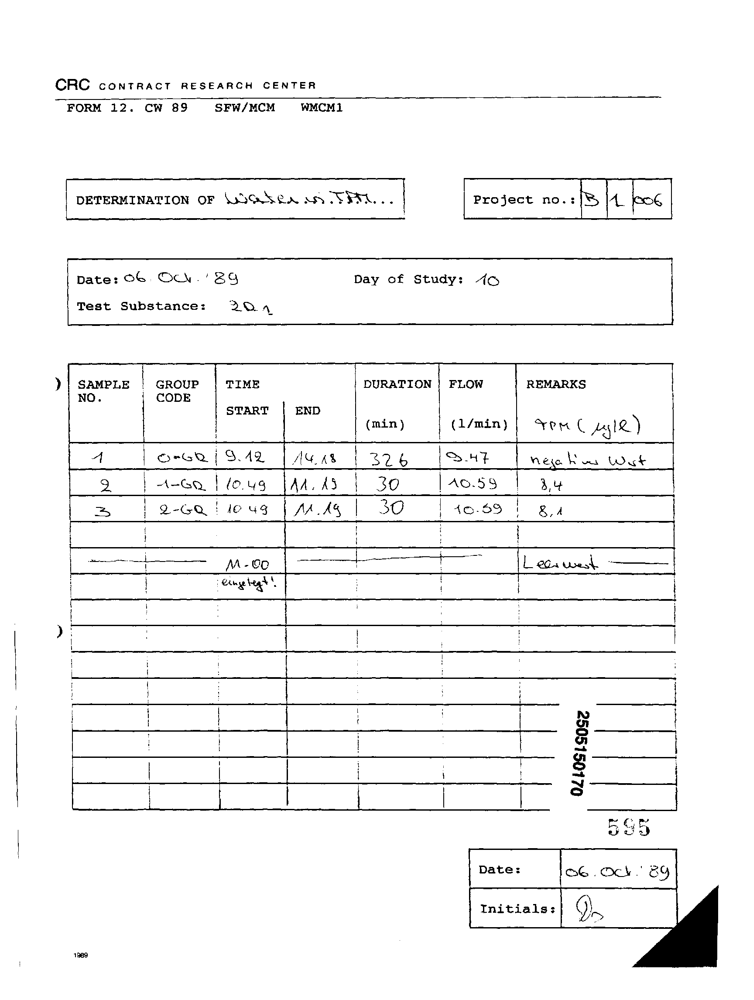 CRC CONTRACT RESEARCH CENTER
FORM 12. CW 89 SFW/MCM WMCM1
DETERMINATION OF Water in TPM...
Project no.: B 1 006
Date: 06. Oct. '89 Day of Study: 10
Test Substance: 2R1
SAMPLE NO. GROUP CODE TIME START END DURATION (min) FLOW (l/min) REMARKS TPM (µg/l)
1 0-GR 9.12 14.18 326 9.47 negativer Wert
2 -1-GR 10.49 11.19 30 10.59 8,4
3 2-GR 10 49 11.19 30 10.59 8,1
11-00 Leerwert
eingelegt!
2505150170
595
Date: 06. Oct. '89
Initials:
1989